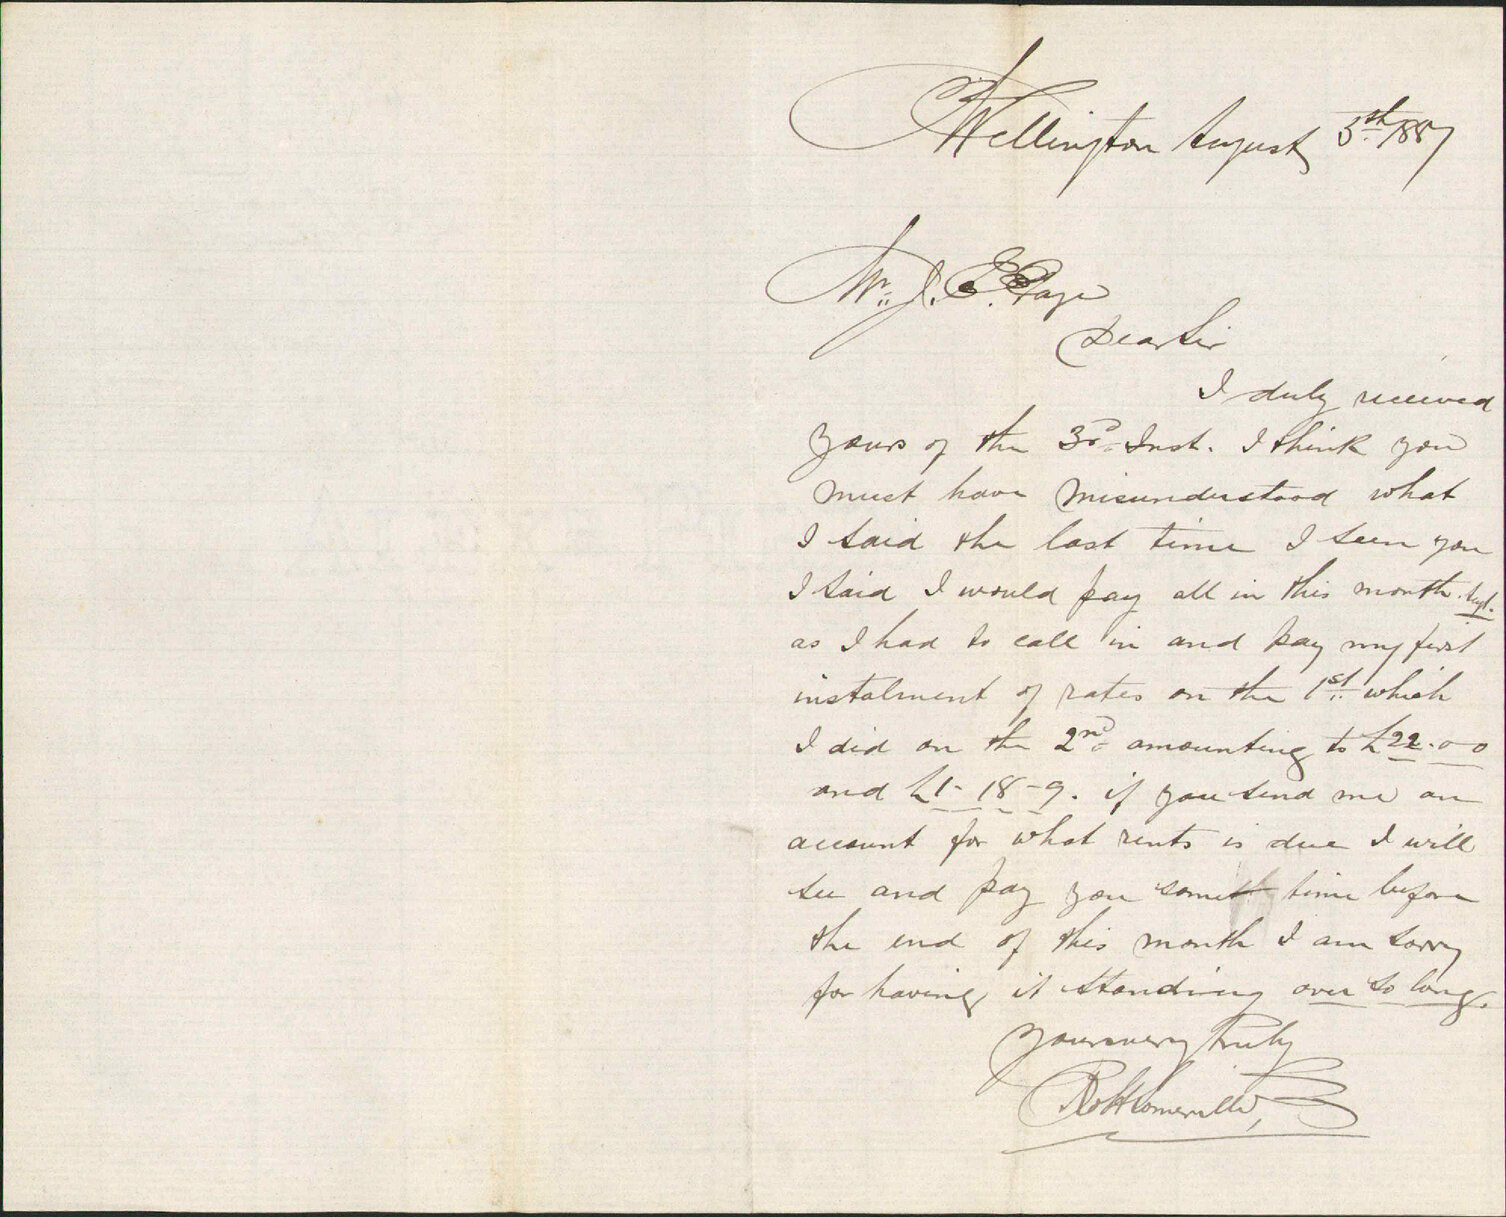 Wellington August 5th 1887
Mr. J. E. Page
Dear Sir
I duly received
yours of the 3rd Inst. I think you
must have misunderstood what
I said the last time I seen you
I said I would pay all in this month
as I had to call in and pay my first
instalment of rates on the 1st which
I did on the 2nd amounting to £22-0-0
and £1-18-9. if you send me an
account for what rents is due I will
see and pay you some time before
the end of this month I am sorry
for having it standing over so long.
Yours very truly
Robt Somerville